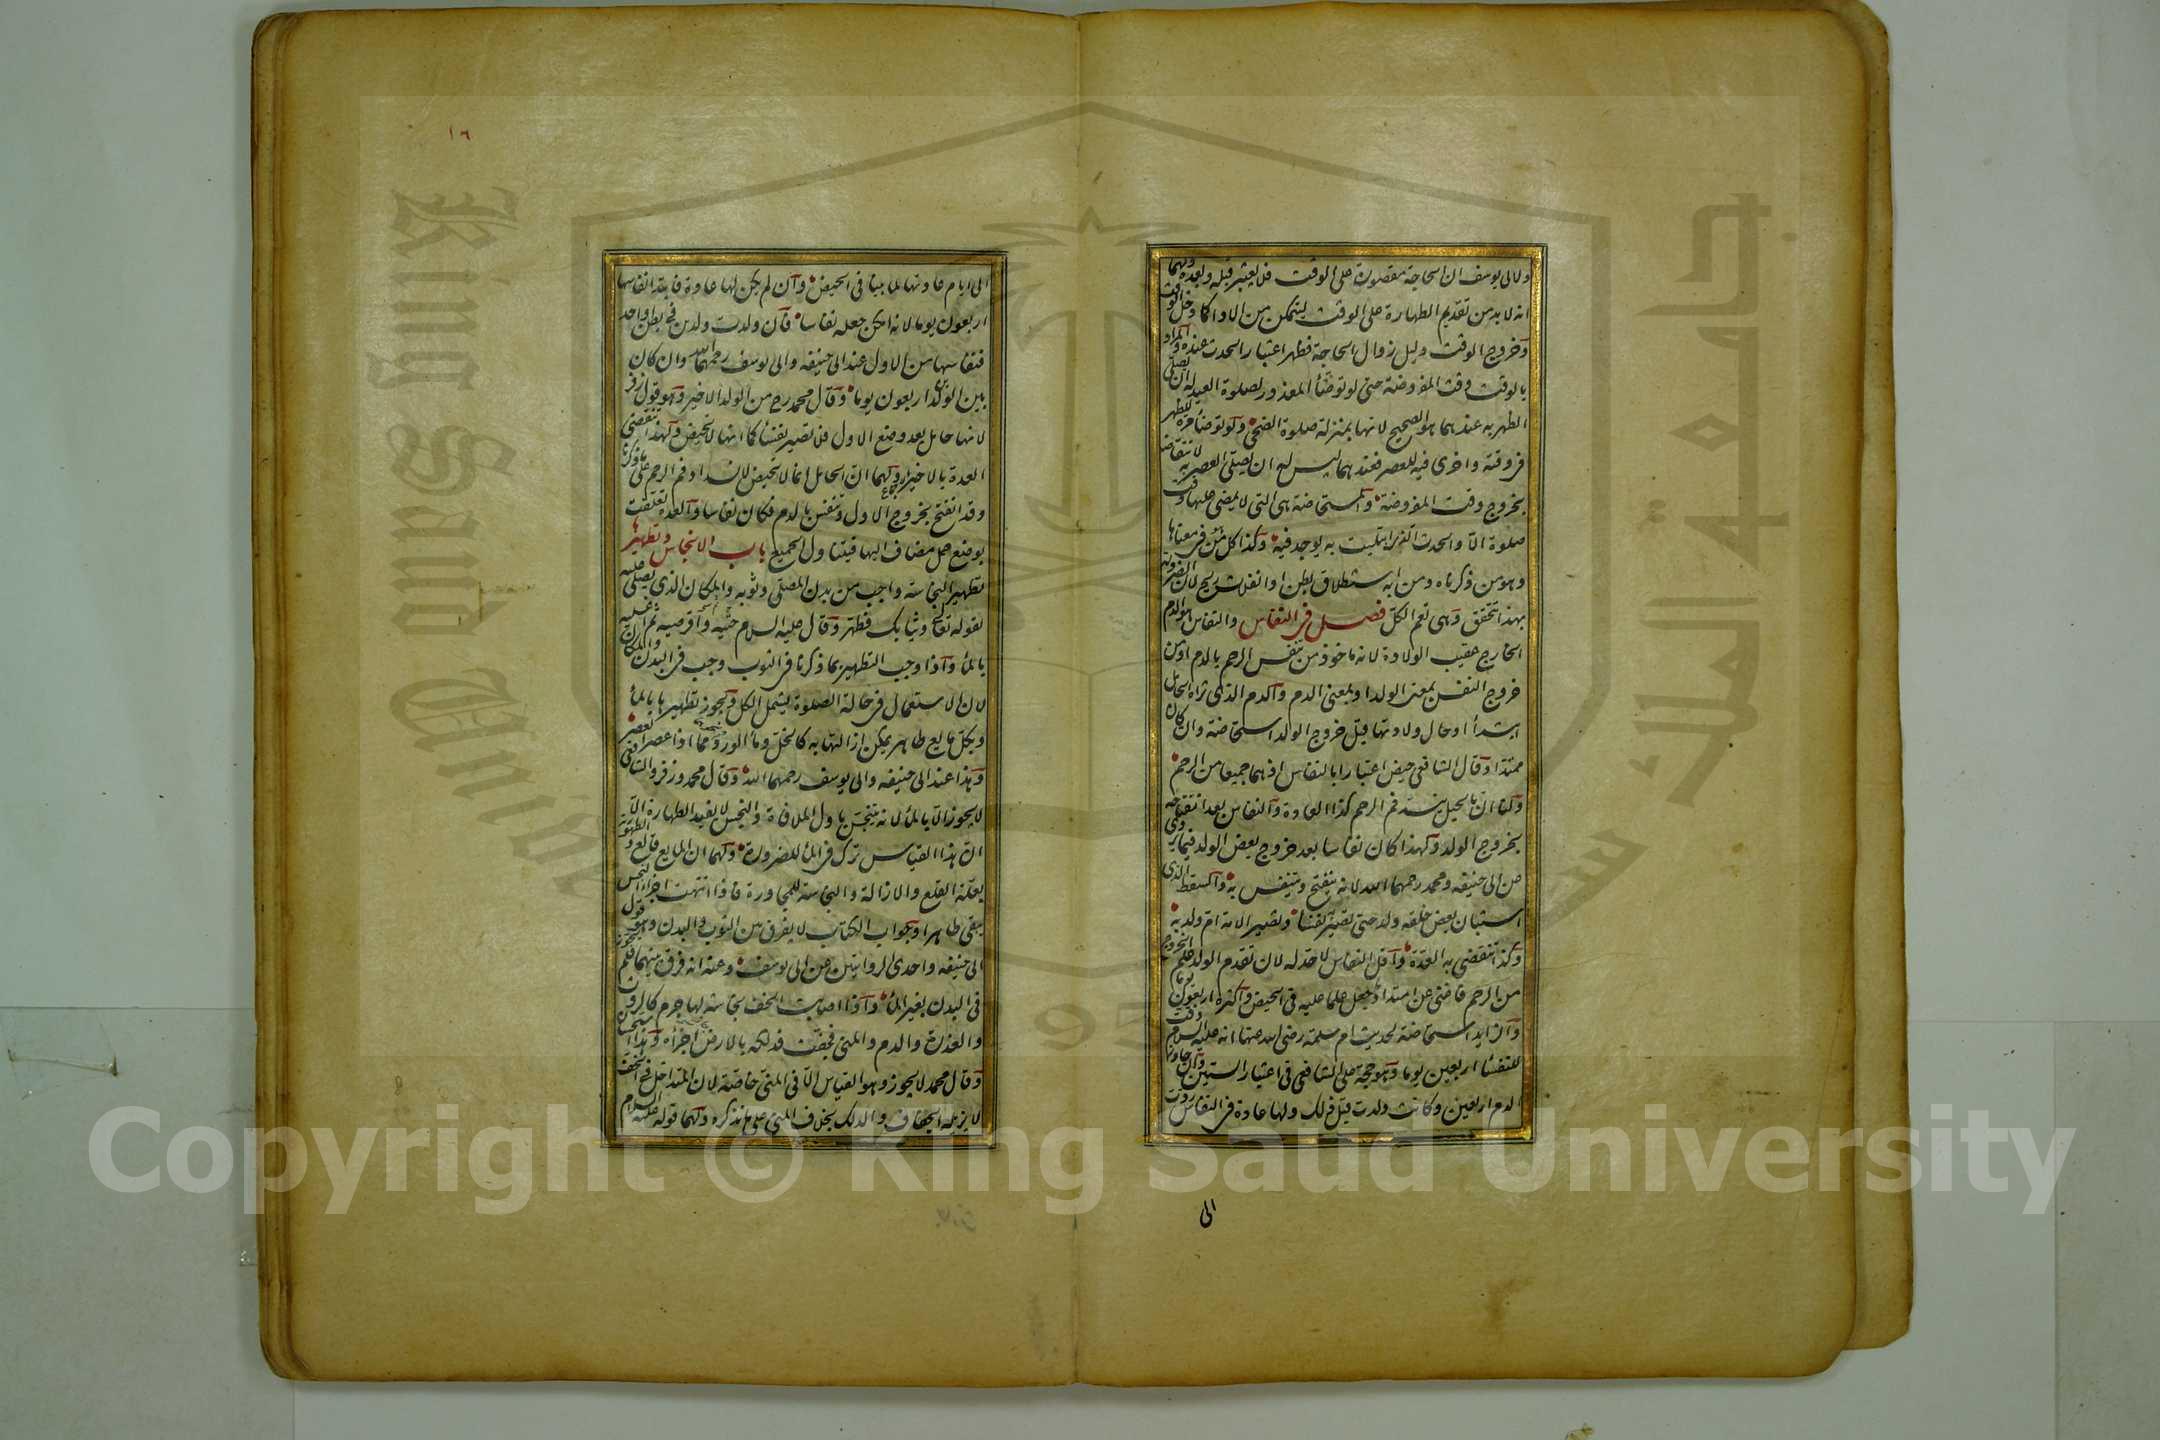 ولابي يوسف ان الحاجة مقصورة على الوقت فلا يعتبر قبله وبعده ولهما
انه لا بد من تقديم الطهارة على الوقت ليتمكن من الاداء كما دخل الوقت
وخروج الوقت دليل زوال الحاجة فظهر اعتبار الحدث عنده والمراد
بالوقت وقت المفروضة حتى لو توضأ المعذور لصلوة العيد له ان يصلى
الظهر به عندهما هو الصحيح لانها بمنزلة صلوة الضحى ولو توضأ مرة للظهر
فى وقته واخرى فيه للعصر فعندهما ليس له ان يصلى العصر به لانتقاضه
بخروج وقت المفروضة والمستحاضة هى التى لا يمضى عليها وقت
صلوة الا والحدث الذى ابتليت به يوجد فيه وكذا كل من فى معناها
وهو من ذكرناه ومن به استطلاق بطن او انفلات ريح لان الضرورة
بهذا تتحقق وهى تعم الكل فصل فى النفاس والنفاس هو الدم
الخارج عقيب الولادة لانه ماخوذ من تنفس الرحم بالدم او من
خروج النفس بمعنى الولد او بمعنى الدم والدم الذى تراه الحامل
ابتدأ او حال ولادتها قبل خروج الولد استحاضة وان كان
ممتدا وقال الشافعى حيض اعتبارا بالنفاس اذ هما جميعا من الرحم
ولنا ان بالحبل ينسد فم الرحم كذا العادة والنفاس بعد انفتاحه
بخروج الولد ولهذا كان نفاسا بعد خروج بعض الولد فيما روى
عن ابى حنيفه ومحمد رحمهما الله لانه ينفتح ويتنفس به والسقط الذى
استبان بعض خلقه ولد حتى تصير نفسا وتصير الامة ام ولد به
وكذا تنقضى به العدة واقل النفاس لا حد له لان تقدم الولد علم الخروج
من الرحم فاغنى عن امتداد جعل علما عليه فى الحيض واكثره اربعون يوما
والزايد استحاضة لحديث ام سلمة رضى الله عنها انه عليه السلام وقت
للنفسأ اربعين يوما وهو حجة على الشافعى فى اعتبار الستين وان جاوز
الدم اربعين وكانت ولدت قبل ذلك ولها عادة فى النفاس ردت
الى
١٦
الى ايام عادتها لما بينا فى الحيض وان لم يكن لها عادة فابتدأ نفاسها
اربعون يوما لانه امكن جعله نفاسا فان ولدت ولدين فى بطن واحد
فنفاسها من الاول عند ابى حنيفه وابى يوسف رحمهما الله وان كان
بين الولدين اربعون يوما وقال محمد رح من الولد الاخير وهو قول زفر
لانها حامل بعد وضع الاول فلا تصير نفسأ كما انها لا تحيض ولهذا تنقضى
العدة بالاخير ولهما ان الحامل انما لا تحيض لانسداد فم الرحم على ما ذكرنا
وقد انفتح بخروج الاول وتنفس بالدم فكان نفاسا والعدة تعلقت
بوضع حمل مضاف اليها فيتناول الجميع باب الانجاس وتطهيرها
تطهير النجاسة واجب من بدن المصلى وثوبه والمكان الذى يصلى عليه
لقوله تعالى وثيابك فطهر وقال عليه السلام حتيه واقرصيه ثم اغسليه
بالمأ واذا وجب التطهير بما ذكرنا فى الثوب وجب فى البدن والمكان
لان الاستعمال فى حالة الصلوة يشمل الكل ويجوز تطهيرها بالمأ
وبكل مايع طاهر يمكن ازالتها به كالخل ومأ الورد ومما اذا عصر انعصر
وهذا عند ابى حنيفه وابى يوسف رحمهما الله وقال محمد وزفر والشافعى
لا يجوز الا بالمأ لانه يتنجس باول الملاقاة والنجس لا يفيد الطهارة الا
ان هذا القياس ترك فى المأ للضرورة ولهما ان المايع قالع والطهورية
بعلة القلع والازالة والنجاسة للمجاورة فاذا انتهت اجزاء النجس
يبقى طاهرا وجواب الكتاب لا يفرق بين الثوب والبدن وهو قول
ابى حنيفه واحدى الروايتين عن ابى يوسف وعنه انه فرق بينهما فلم يجوز
فى البدن بغير المأ واذا اصابت الخف نجاسة لها جرم كالروث
والعذرة والدم والمنى فجفت فدلكه بالارض اجزأه وهذا استحسان
وقال محمد لا يجوز وهو القياس الا فى المنى خاصة لان المتداخل فى الخف
لا يزيله الجفاف والدلك بخلاف المنى على ما نذكره ولهما قوله عليه السلام
King Saud University
جامعة الملك سعود
1957
Copyright © King Saud University